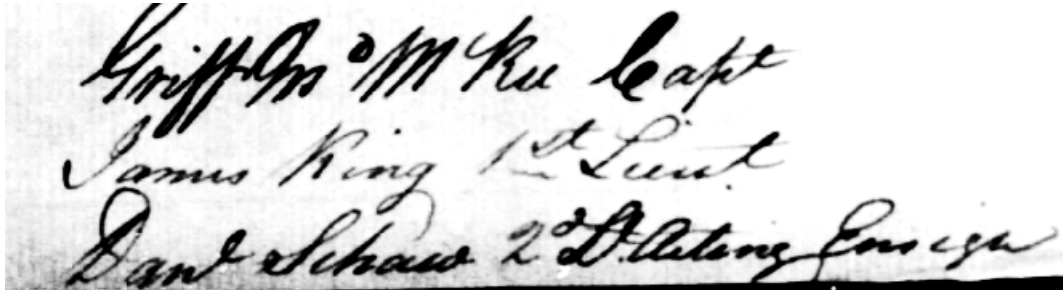 Griff Jn° McRee Capt
James King 1st Lieut
Danl Schaw 2d Lt. Acting Ensign